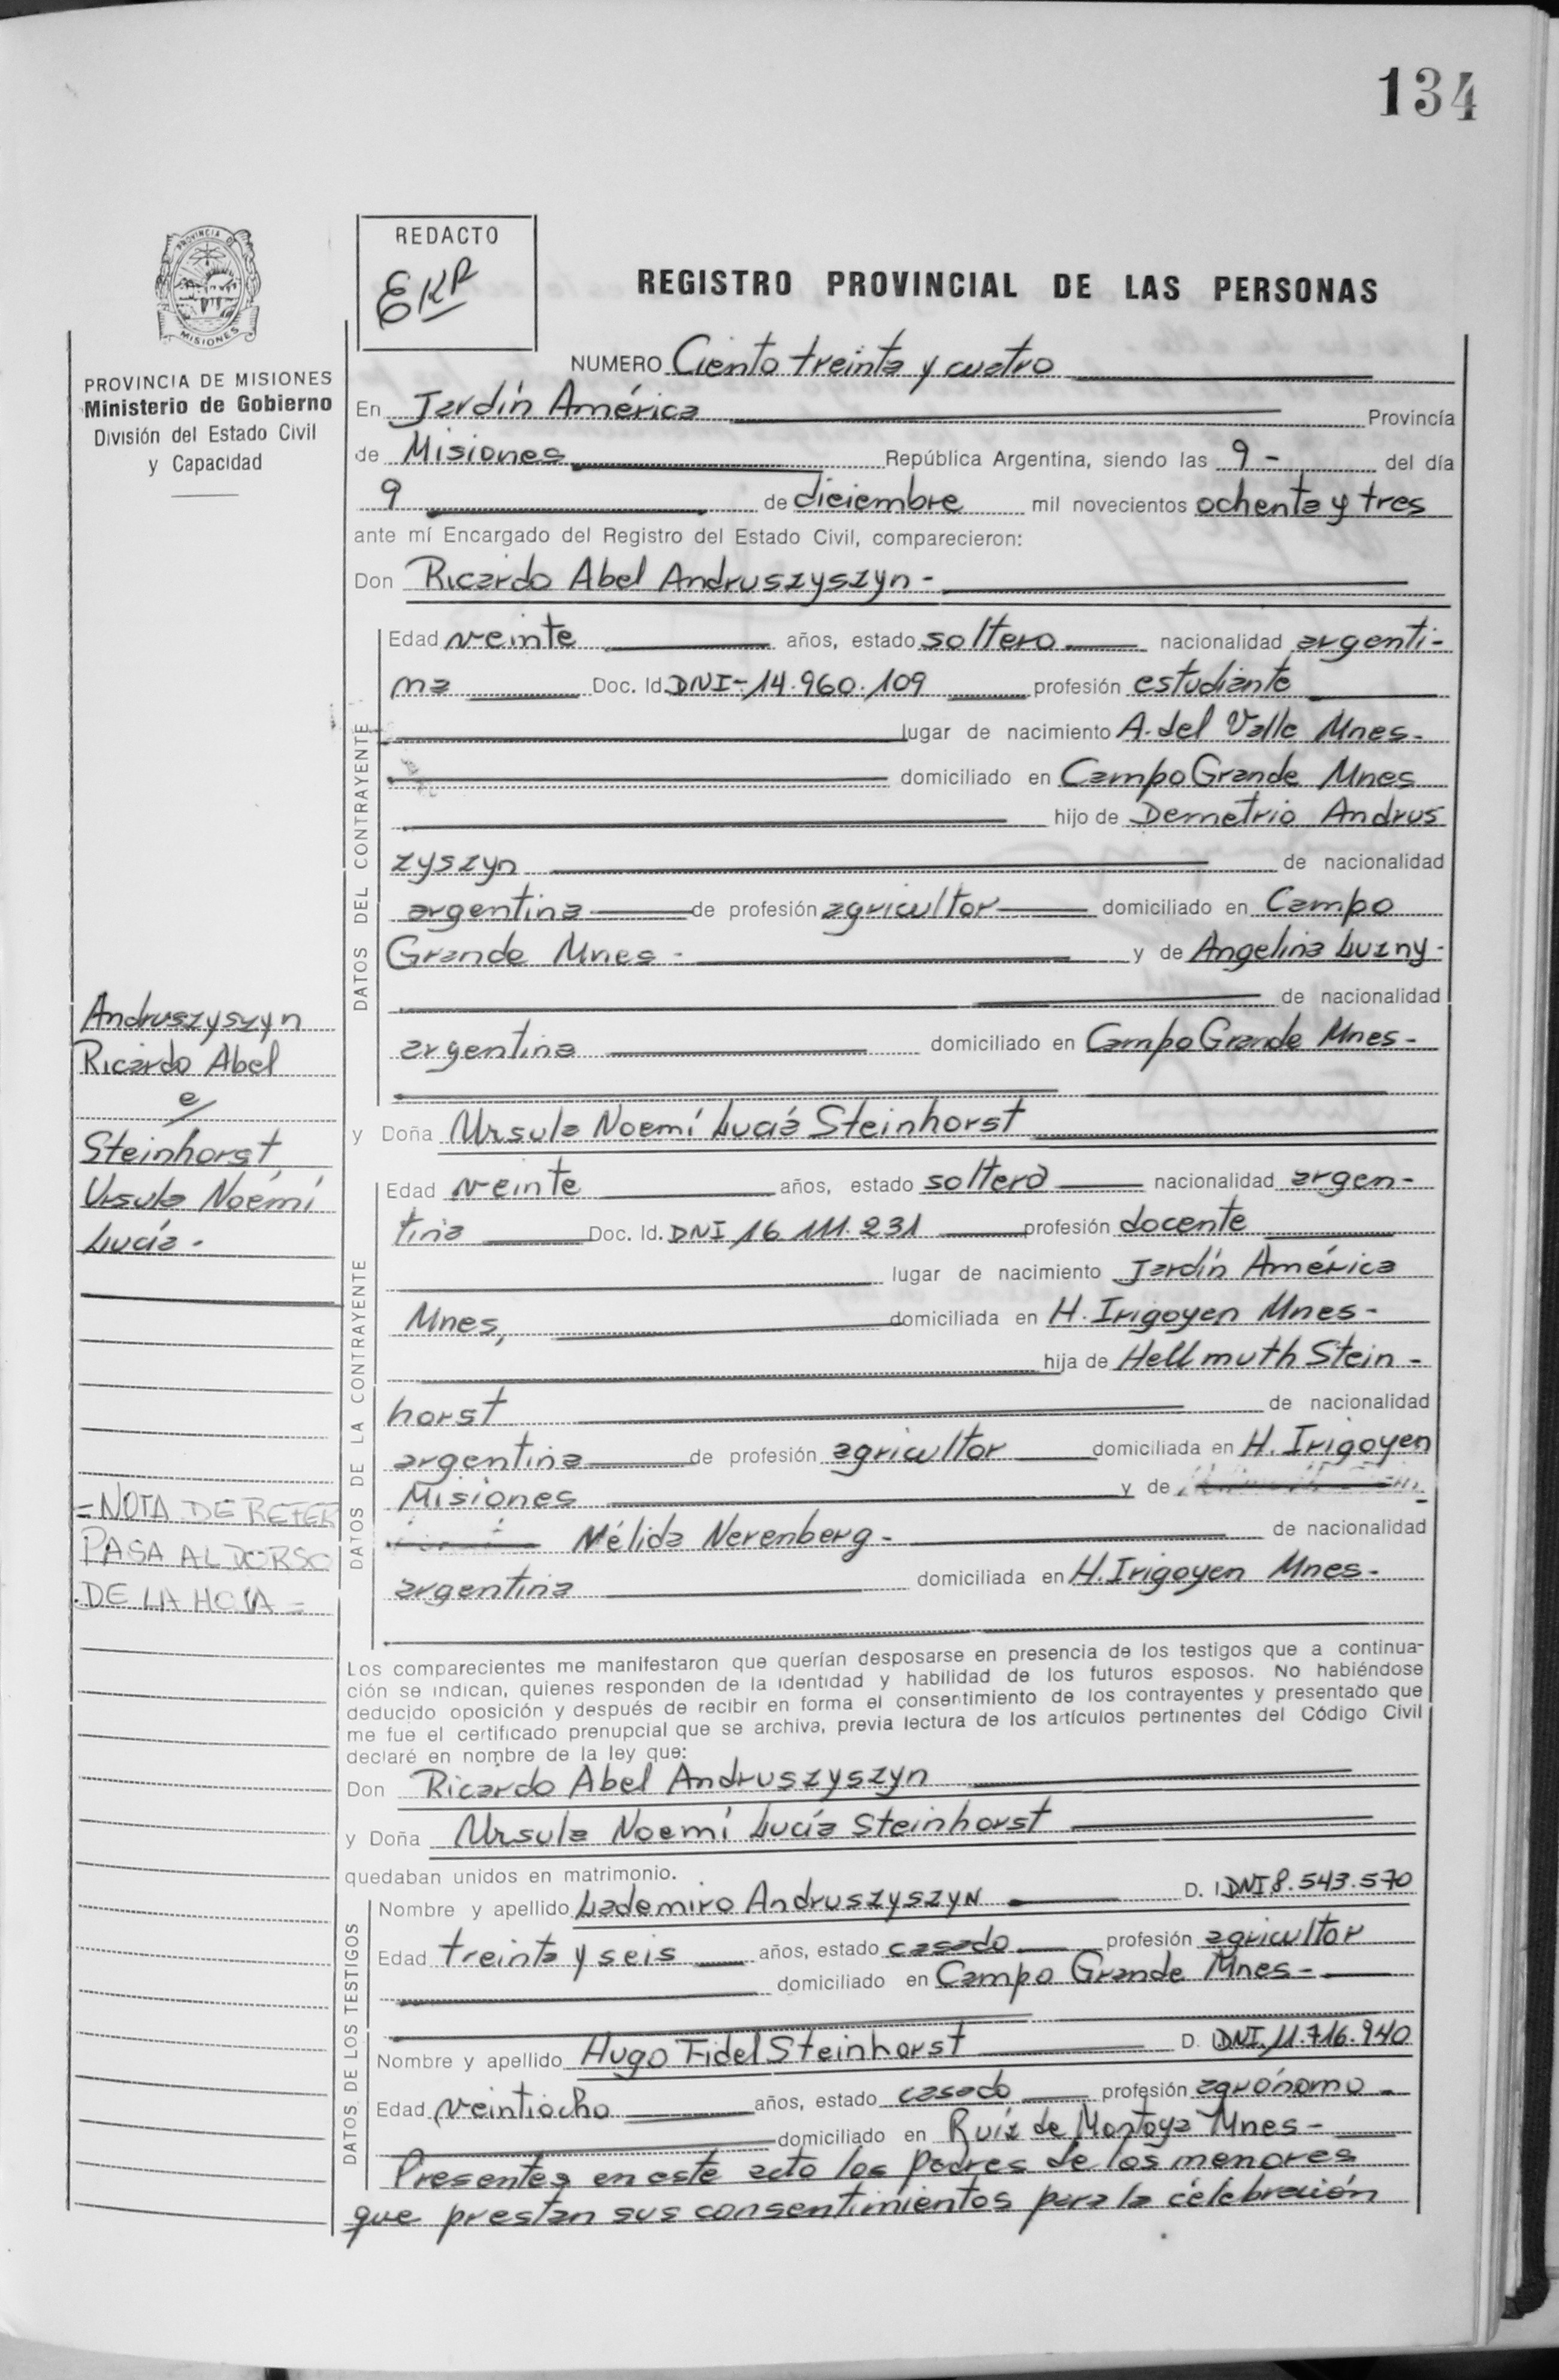 134
REDACTO
EKP
REGISTRO PROVINCIAL DE LAS PERSONAS
PROVINCIA DE
MISIONES
PROVINCIA DE MISIONES
Ministerio de Gobierno
División del Estado Civil
y Capacidad
NUMERO Ciento treinta y cuatro
En Jardín América Provincia
de Misiones República Argentina, siendo las 9- del día
9 de diciembre mil novecientos ochenta y tres
ante mí Encargado del Registro del Estado Civil, comparecieron:
Don Ricardo Abel Andruszyszyn-
DATOS DEL CONTRAYENTE
Edad veinte años, estado soltero nacionalidad argenti-
na Doc. Id. DNI-14.960.109 profesión estudiante
lugar de nacimiento A. del Valle Mnes-
domiciliado en Campo Grande Mnes
hijo de Demetrio Andrus
zyszyn de nacionalidad
argentina de profesión agricultor domiciliado en Campo
Grande Mnes- y de Angelina Luzny-
de nacionalidad
argentina domiciliado en Campo Grande Mnes-
Andruszyszyn
Ricardo Abel
e/
Steinhorst
Ursula Noemí
Lucía-
y Doña Ursula Noemí Lucía Steinhorst
DATOS DE LA CONTRAYENTE
Edad veinte años, estado soltera nacionalidad argen-
tina Doc. Id. DNI 16.111.231 profesión docente
lugar de nacimiento Jardín América
Mnes, domiciliada en H. Irigoyen Mnes-
hija de Hellmuth Stein-
horst de nacionalidad
argentina de profesión agricultor domiciliada en H. Irigoyen
Misiones y de
Nélida Nerenberg- de nacionalidad
argentina domiciliada en H. Irigoyen Mnes-
=NOTA DE REFER
PASA AL DORSO
DE LA HOJA=
Los comparecientes me manifestaron que querían desposarse en presencia de los testigos que a continua-
ción se indican, quienes responden de la identidad y habilidad de los futuros esposos. No habiéndose
deducido oposición y después de recibir en forma el consentimiento de los contrayentes y presentado que
me fue el certificado prenupcial que se archiva, previa lectura de los artículos pertinentes del Código Civil
declaré en nombre de la ley que:
Don Ricardo Abel Andruszyszyn
y Doña Ursula Noemí Lucía Steinhorst
quedaban unidos en matrimonio.
DATOS DE LOS TESTIGOS
Nombre y apellido Lademiro Andruszyszyn D. I DNI 8.543.570
Edad treinta y seis años, estado casado profesión agricultor
domiciliado en Campo Grande Mnes-
Nombre y apellido Hugo Fidel Steinhorst D. I DNI. 11.716.940
Edad veintiocho años, estado casado profesión agrónomo-
domiciliado en Ruíz de Montoya Mnes-
Presentes en este acto los padres de los menores
que prestan sus consentimientos para la celebración